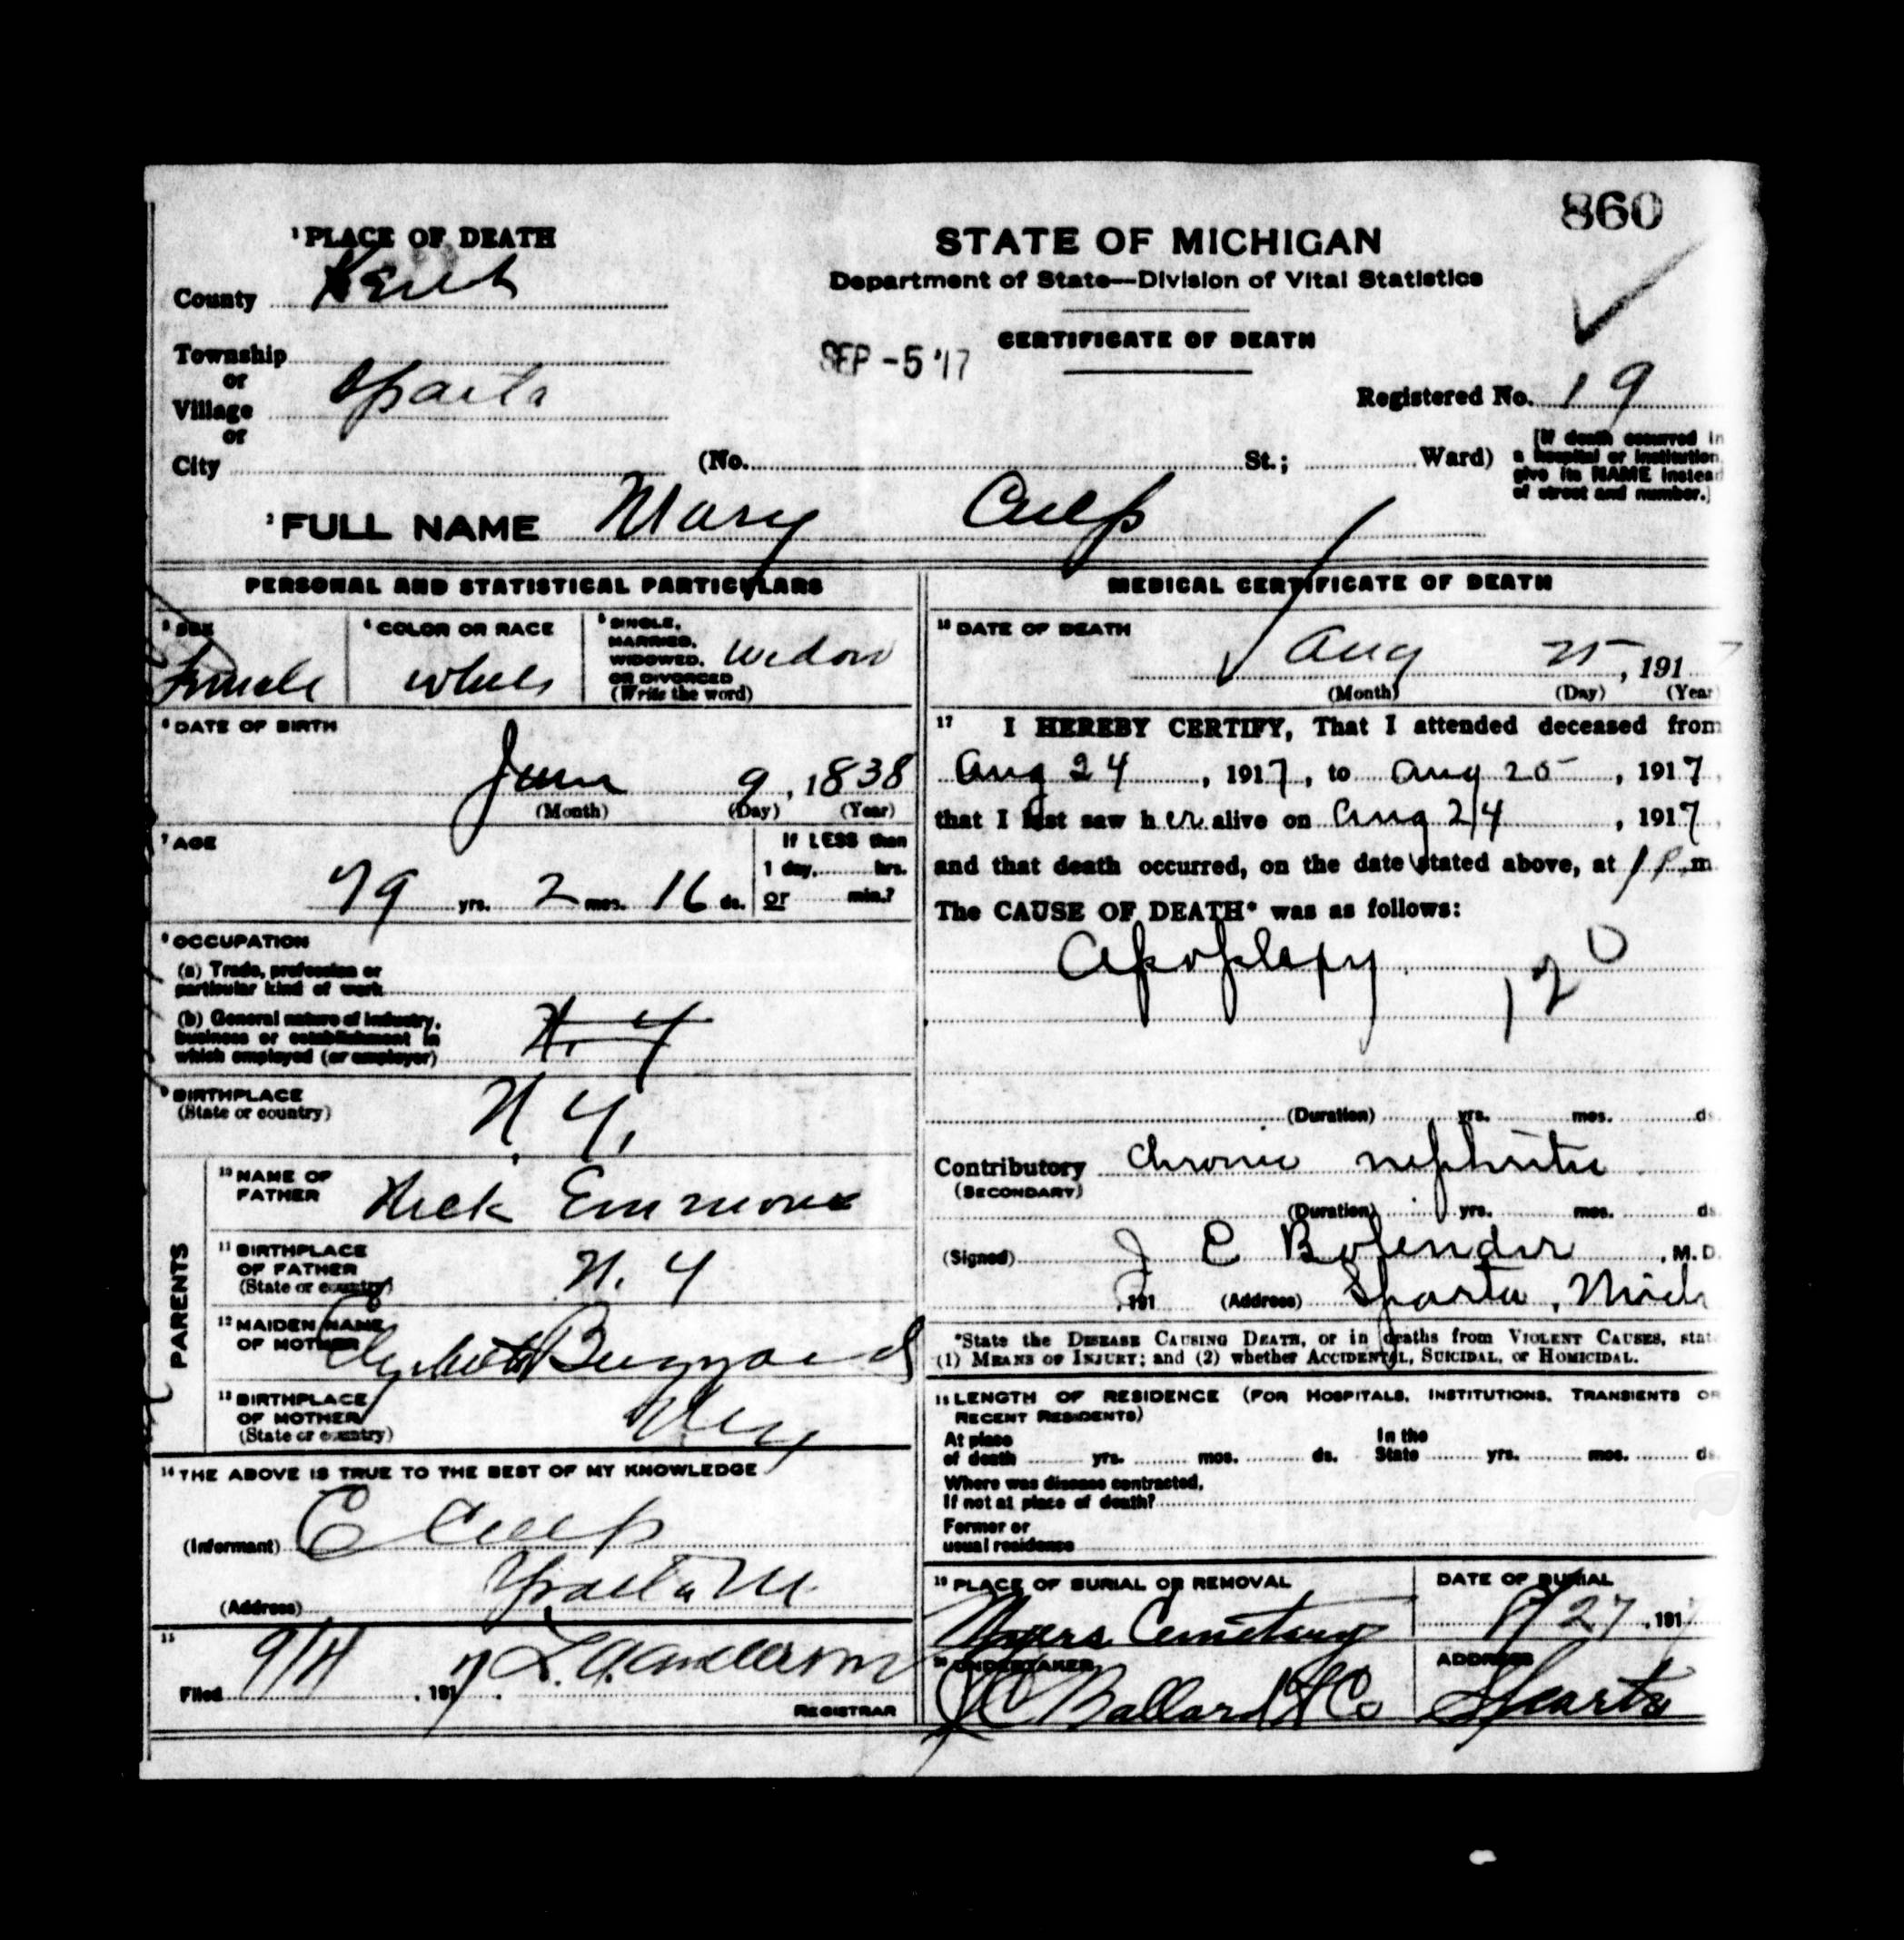 860
¹PLACE OF DEATH
STATE OF MICHIGAN
Department of State—Division of Vital Statistics
County Kent
CERTIFICATE OF DEATH
SEP -5 '17
Township
or
Village Sparta
or
City
Registered No. 19
(No. St.; Ward)
[If death occurred in
a hospital or institution,
give its NAME instead
of street and number.]
²FULL NAME Mary Culp
PERSONAL AND STATISTICAL PARTICULARS
³SEX
Female
⁴COLOR OR RACE
White
⁵SINGLE,
MARRIED,
WIDOWED,
OR DIVORCED
(Write the word)
Widow
⁶DATE OF BIRTH
June 9, 1838
(Month) (Day) (Year)
⁷AGE
79 yrs. 2 mos. 16 ds.
If LESS than
1 day, hrs.
or min.?
⁸OCCUPATION
(a) Trade, profession or
particular kind of work
(b) General nature of industry,
business or establishment in
which employed (or employer)
N. Y
⁹BIRTHPLACE
(State or country)
N. Y.
PARENTS
¹⁰NAME OF
FATHER
Emmons
¹¹BIRTHPLACE
OF FATHER
(State or country)
N. Y
¹²MAIDEN NAME
OF MOTHER
¹³BIRTHPLACE
OF MOTHER
(State or country)
¹⁴THE ABOVE IS TRUE TO THE BEST OF MY KNOWLEDGE
(Informant) E Culp
(Address) Sparta M
¹⁵
Filed 9/4, 1917
REGISTRAR
MEDICAL CERTIFICATE OF DEATH
¹⁶DATE OF DEATH
Aug 25, 1917
(Month) (Day) (Year)
¹⁷ I HEREBY CERTIFY, That I attended deceased from
Aug 24, 1917, to Aug 25, 1917,
that I last saw her alive on Aug 24, 1917,
and that death occurred, on the date stated above, at 1 P.m
The CAUSE OF DEATH* was as follows:
Apoplexy
120
(Duration) yrs. mos. ds
Contributory Chronic nephritis
(SECONDARY)
(Duration) yrs. mos. ds
(Signed) J E Bolender, M. D.
, 191 (Address) Sparta, Mich
*State the DISEASE CAUSING DEATH, or in deaths from VIOLENT CAUSES, state
(1) MEANS OF INJURY; and (2) whether ACCIDENTAL, SUICIDAL, or HOMICIDAL.
¹⁸LENGTH OF RESIDENCE (FOR HOSPITALS, INSTITUTIONS, TRANSIENTS OR
RECENT RESIDENTS)
At place
of death yrs. mos. ds.
In the
State yrs. mos. ds
Where was disease contracted,
If not at place of death?
Former or
usual residence
¹⁹PLACE OF BURIAL OR REMOVAL
Myers Cemetery
DATE OF BURIAL
8/27, 1917
²⁰UNDERTAKER
J C Ballard & Co
ADDRESS
Sparta